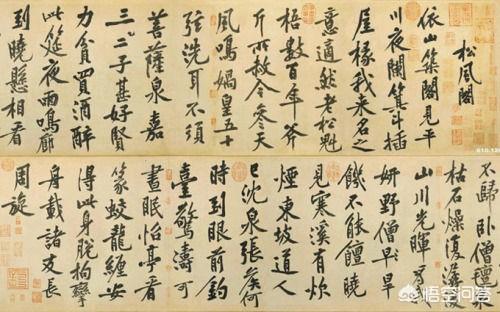 松風閣
依山築閣見平
川夜闌箕斗插
屋椽我來名之
意適然老松魁
梧數百年斧
斤所赦今參天
風鳴媧皇五十
弦洗耳不須
菩薩泉嘉
三二子甚好賢
力貧買酒醉
此筵夜雨鳴廊
到曉懸相看
不歸卧僧氈泉
枯石燥復潺湲
山川光暉為我
妍野僧早旱
飢不能饘曉
見寒溪有炊
煙東坡道人
已沈泉張侯何
時到眼前釣
臺驚濤可
晝眠怡亭看
篆蛟龍纏安
得此身脫拘攣
舟載諸友長
周旋
悟空问答